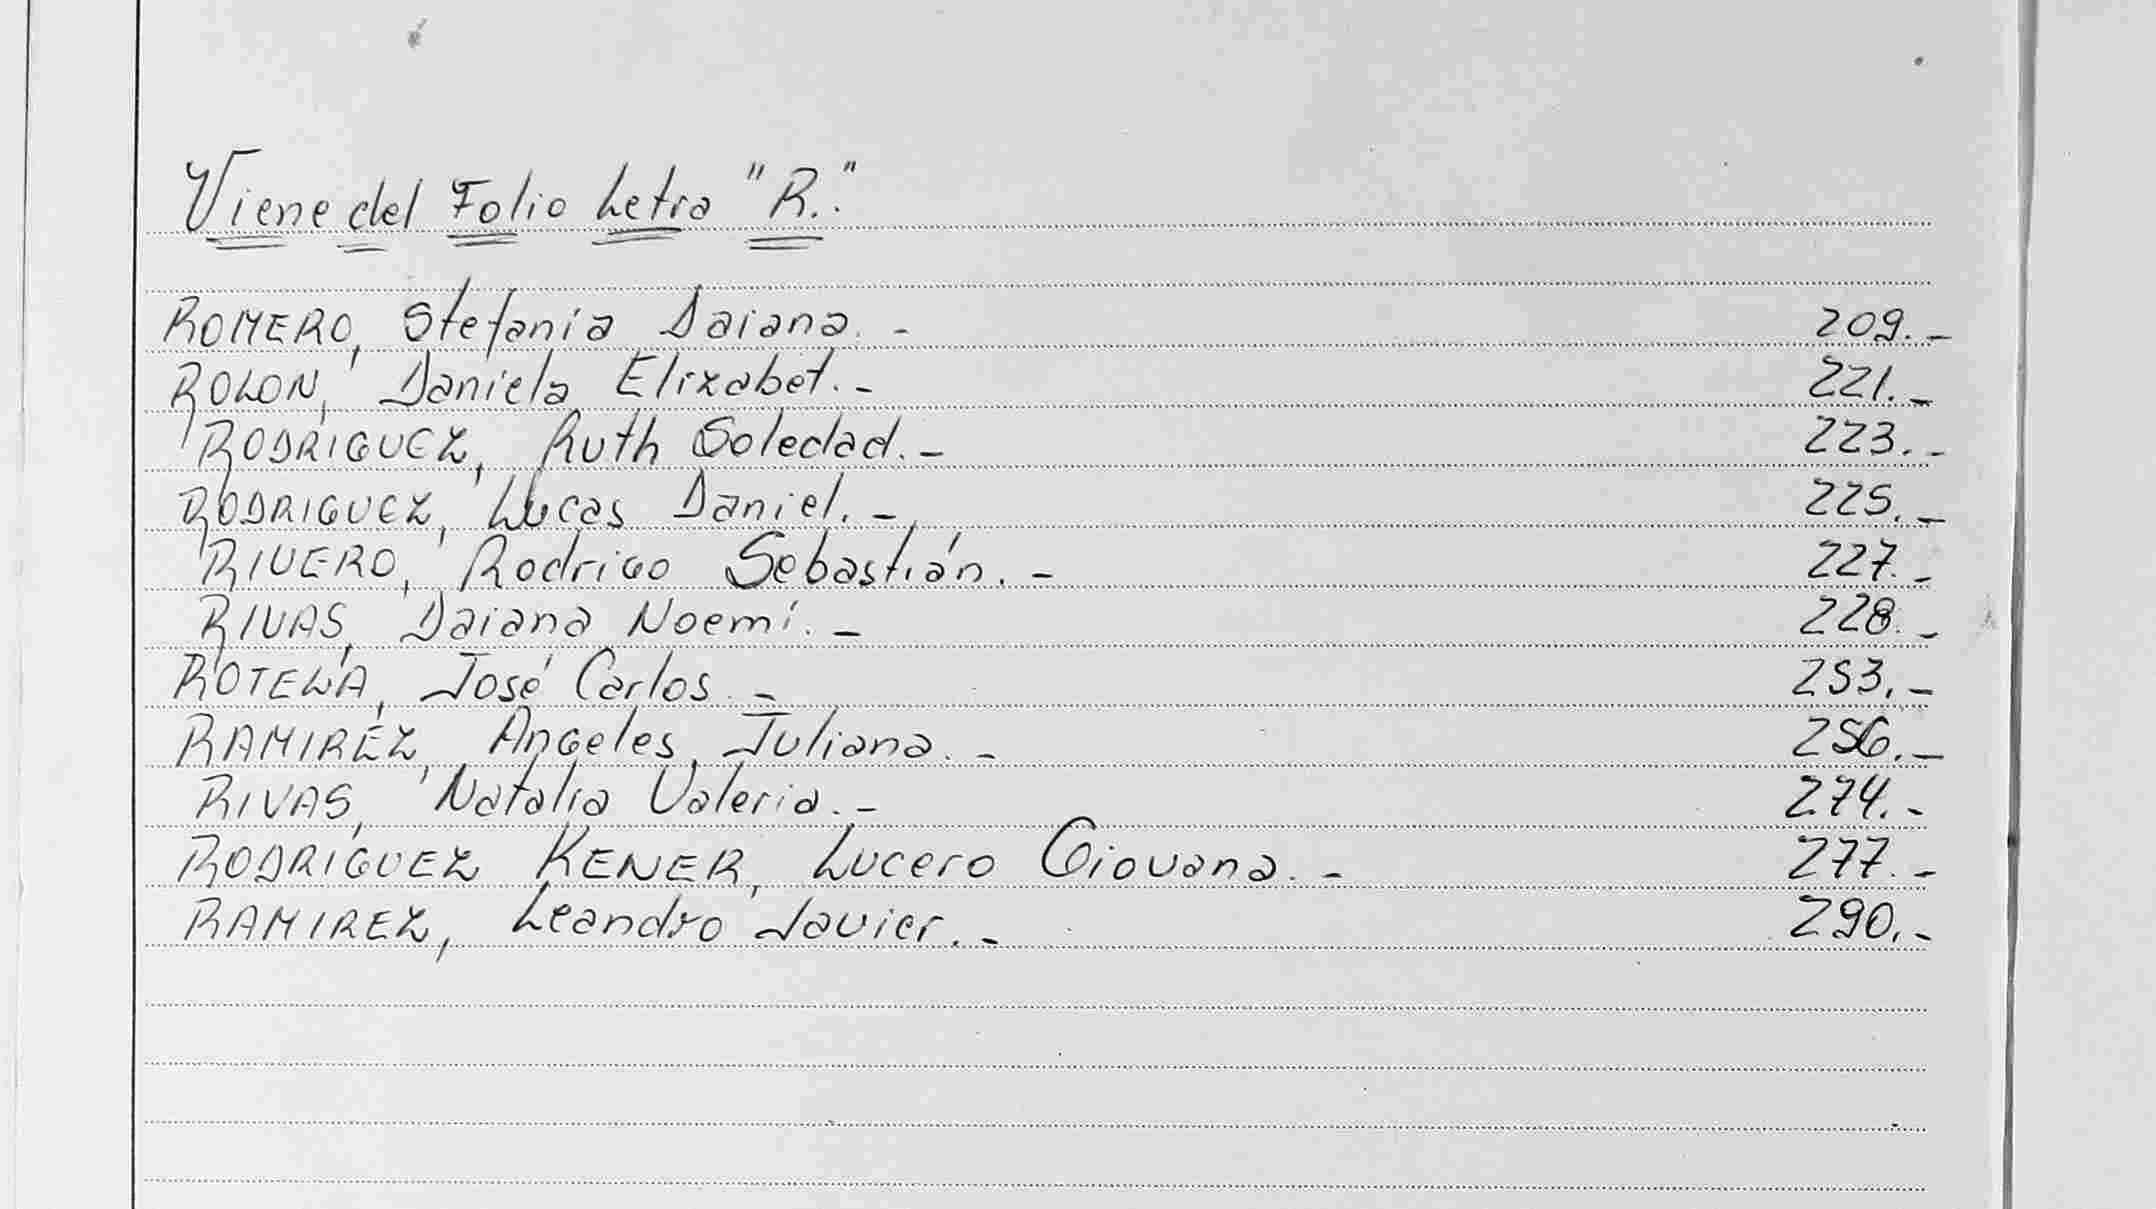 Viene del Folio Letra "R."
ROMERO, Stefanía Daiana.- 209.-
ROLON, Daniela Elizabet.- 221.-
RODRIGUEZ, Ruth Soledad.- 223.-
RODRIGUEZ, Lucas Daniel.- 225.-
RIVERO, Rodrigo Sebastián.- 227.-
RIVAS, Daiana Noemí.- 228.-
ROTELA, José Carlos.- 253.-
RAMIREZ, Angeles Juliana.- 256.-
RIVAS, Natalia Valeria.- 274.-
RODRIGUEZ KENER, Lucero Giovana.- 277.-
RAMIREZ, Leandro Javier.- 290.-